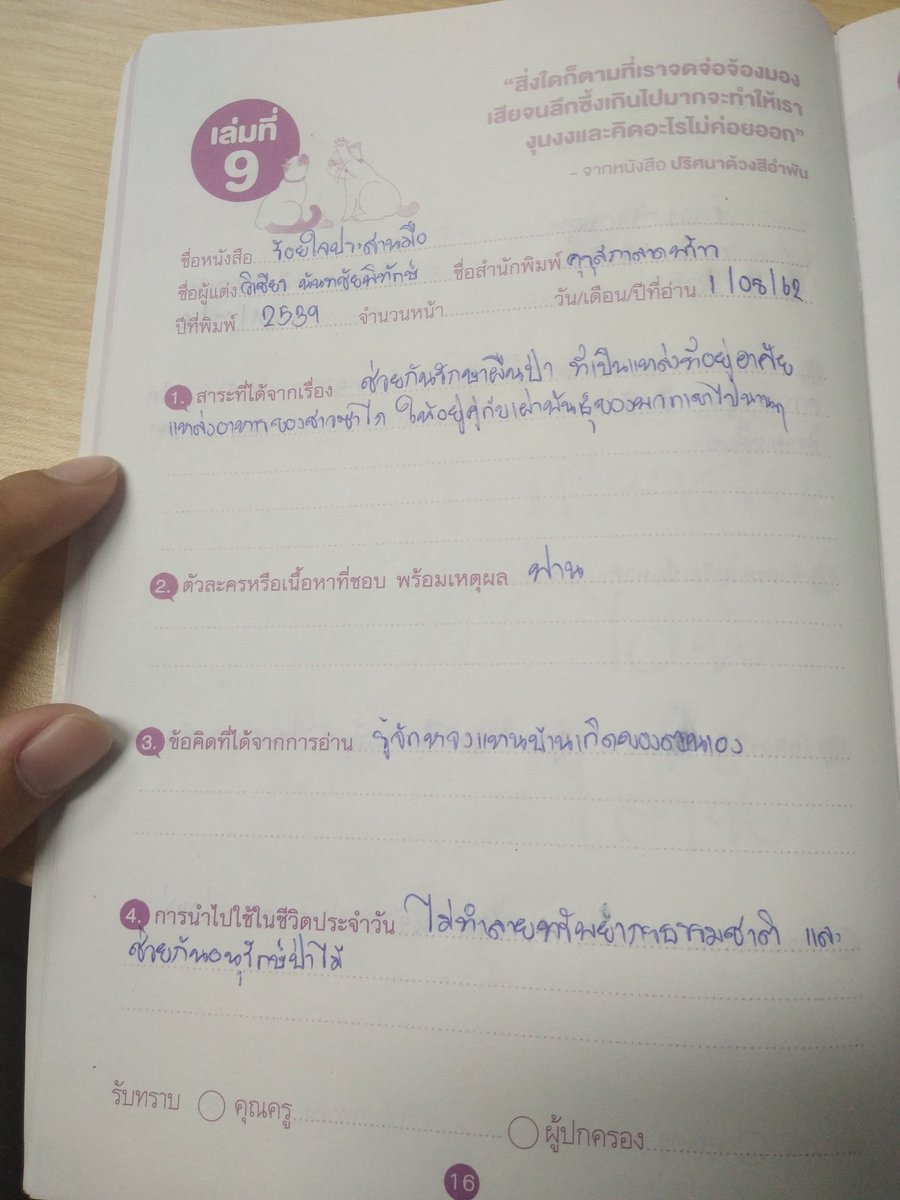 เล่มที่
9
“สิ่งใดก็ตามที่เราจดจ่อจ้องมอง
เสียจนลึกซึ้งเกินไปมากจะทำให้เรา
งุนงงและคิดอะไรไม่ค่อยออก”
- จากหนังสือ ปริศนาด้วงสีอำพัน
ชื่อหนังสือ ร้อยใจประสานมือ
ชื่อผู้แต่ง วิเชียร นันทชัยพิทักษ์ ชื่อสำนักพิมพ์ คุรุสภาลาดพร้าว
ปีที่พิมพ์ 2539 จำนวนหน้า วัน/เดือน/ปีที่อ่าน 1/08/62
1. สาระที่ได้จากเรื่อง ช่วยกันรักษาผืนป่า ที่เป็นแหล่งที่อยู่อาศัย
แหล่งอาหารของชาวซาไก ให้อยู่คู่กับเผ่าพันธุ์ของพวกเขาไปนานๆ
2. ตัวละครหรือเนื้อหาที่ชอบ พร้อมเหตุผล
3. ข้อคิดที่ได้จากการอ่าน รู้จักหวงแหนบ้านเกิดของตนเอง
4. การนำไปใช้ในชีวิตประจำวัน ไม่ทำลายทรัพยากรธรรมชาติ และ
ช่วยกันอนุรักษ์ป่าไม้
รับทราบ คุณครู ผู้ปกครอง
16